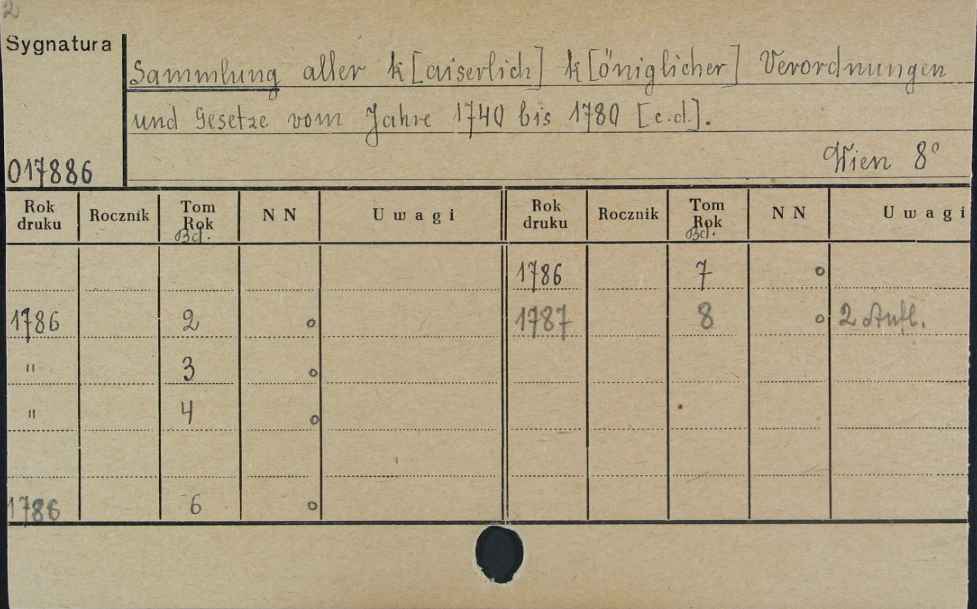 2
Sygnatura
Sammlung aller k[aiserlich] k[öniglicher] Verordnungen
und Gesetze vom Jahre 1740 bis 1780 [e.d.].
017886
Wien 8°
Rok druku Rocznik Tom Rok Bd. NN Uwagi Rok druku Rocznik Tom Rok Bd. NN Uwagi
1786 7 o
1786 2 o 1787 8 o 2 Aufl.
" 3 o
" 4 o
1786 6 o